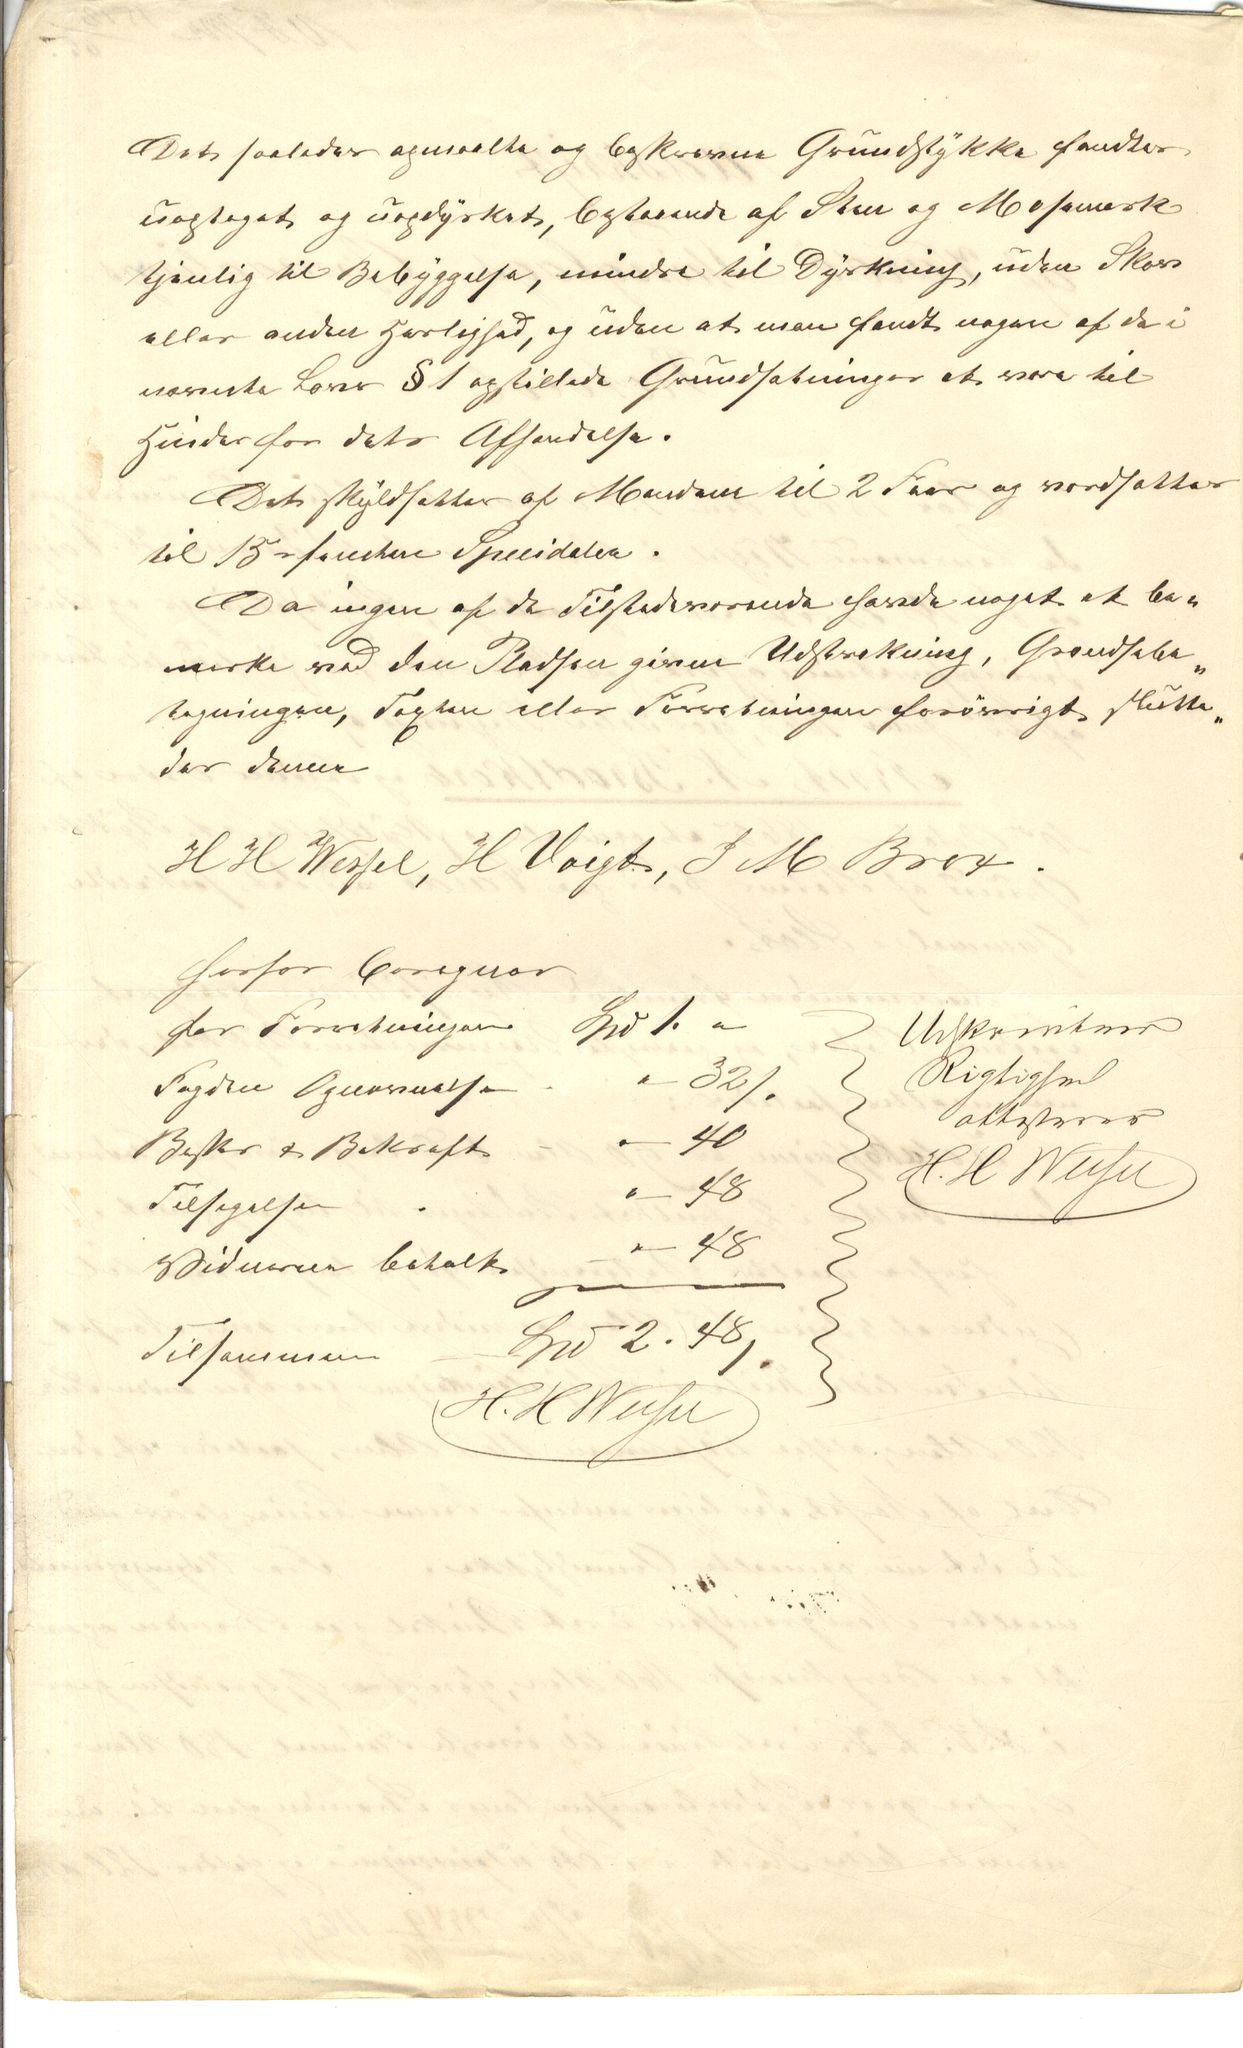 Det saaledes opmaalte og beskrevne Grundstykke fandtes
uoptaget og uopdyrket, bestaaende af Sten og Mosemark
tjenlig til Bebyggelse, mindre til Dyrkning, uden Skov
eller anden Herlighed, og uden at man fandt nogen af de i
nævnte Lovs § 1 opstillede Grundsætninger at være til
Hinder for dets Afhændelse.
Det skyldsættes af Mændene til 2 Skar og værdsættes
til 15 femten Speciedaler.
Da ingen af de Tilstedeværende havde noget at be„
mærke ved den Pladsen givne Udstrækning, Grændsebe„
tegningen, Taxten eller Forretningen forövrigt slutte„
des denne
H H Wessel, H Voigt, J M Brox.
herfor beregner
for Forretningen Spd 1. "
Fogdens Opnævnelse - " 32 /.
Beskr & Bekræft - " 40
Tilsigelsen . " 48
Vidnerne betalt " 48
Tilsammen Spd 2. 48 /.
H. H Wessel
Udskriftens
Rigtighed
attesterer
H. H Wessel